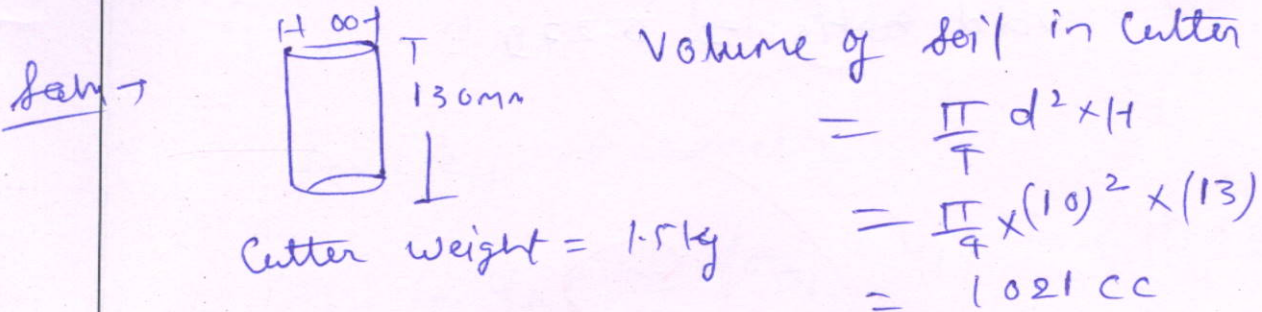 Soln →
100
130mm
Cutter weight = 1.5 kg
Volume of soil in Cutter
= π/4 d² × H
= π/4 × (10)² × (13)
= 1021 CC